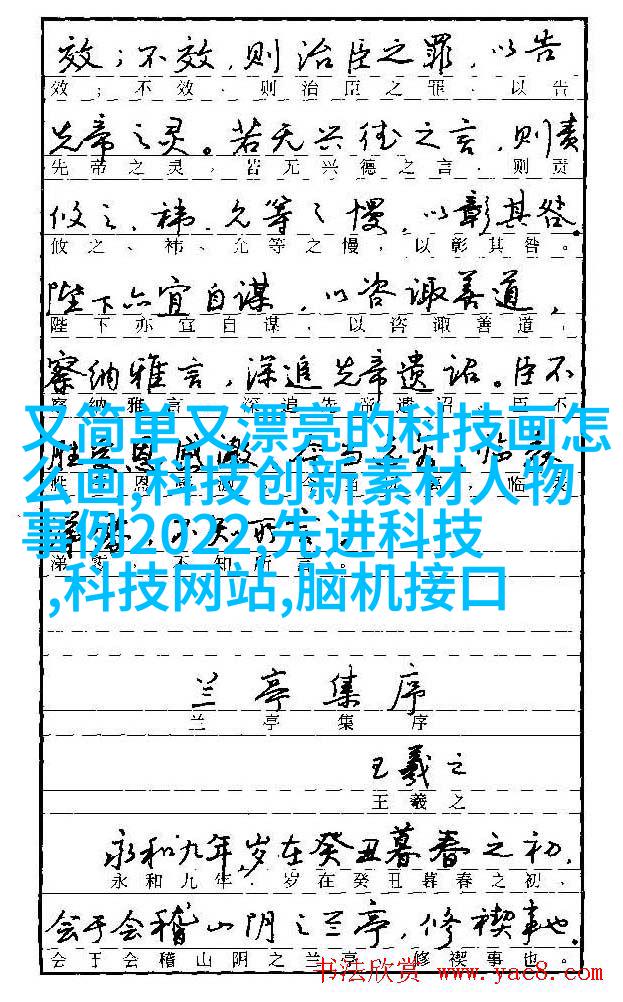 效；不效，则治臣之罪，以告
效；不效、则治臣之罪、以告
先帝之灵。若无兴德之言，则责
先帝之灵，若无兴德之言、则责
攸之、祎、允等之慢，以彰其咎。
攸之、祎、允等之慢，以彰其咎。
陛下亦宜自谋，以咨诹善道，
陛下亦宜自谋、以咨诹善道，
察纳雅言，深追先帝遗诏。臣不
察纳雅言、深追先帝遗诏、臣不
又简单又漂亮的科技画怎
么画,科技创新素材人物
事例2022,先进科技
,科技网站,脑机接口
不知所言。
涕零，不知所言。
兰亭集序
兰亭集序
王羲之
王羲之
永和九年,岁在癸丑暮春之初,
永和九年、岁在癸丑暮春之初、
会于会稽山阴之兰亭，修禊事也。
会于会稽山阴之兰亭，修禊事也。
书法欣赏 www.yac8.com